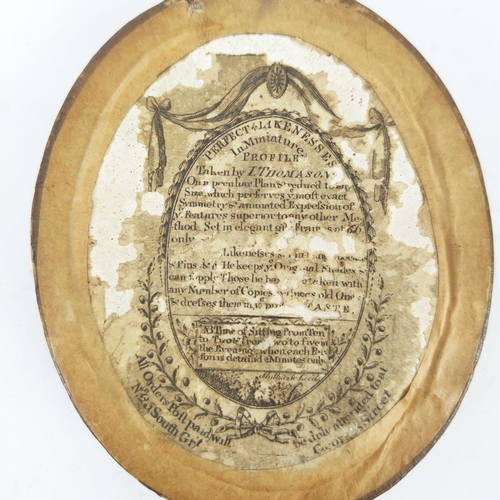 PERFECT LIKENESSES
In Miniature
PROFILE
Taken by I. THOMASON
On a peculiar Plan & reduced to any
Size, which preserves yᵉ most exact
Symmetry & animated Expression of
yᵉ Features superior to any other Me-
thod. Set in elegant gilt Frames at 6/
only
Likenesses
& Pins &c. He keeps yᵉ Original Shades &
can supply Those he has taken with
any Number of Copies old One
& dresses them in TASTE
NB Time of Sitting from Ten
to Two & from Two to five in
the Evening when each Per-
son is detained 2 Minutes only
All Orders Post paid will
be duly attended to at
No. 25 South Grt.
George Street